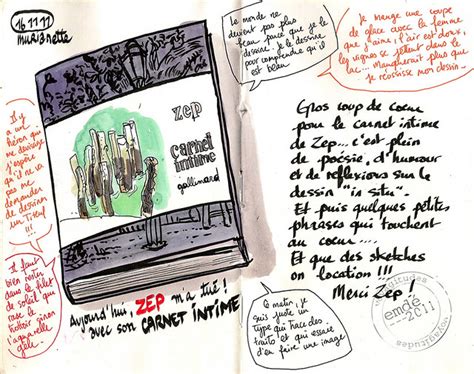 16 11 11
murzenette
zep
carnet
intime
gallimard
Le monde ne
devient pas plus
beau parce que je le
dessine. Je le dessine
pour comprendre qu'il
est beau
Je mange une coupe
de glace avec la femme
que j'aime, l'air est doux,
les vignes se jettent dans le
lac... Manquerait plus que
je réussisse mon dessin...
Il y
a un
héron qui
me dévisage
j'espère
qu'il ne va
pas me
demander
de dessiner
un Titeuf
!!!
Il faut
bien rester
dans le filet
de soleil qui
rase le
trottoir sinon
l'aquarelle
gèle.
Gros coup de coeur
pour le carnet intime
de Zep... c'est plein
de poésie, d'humour
et de réflexions sur le
dessin "in situ".
Et puis quelques petites
phrases qui touchent
au coeur....
Et que des sketches
on location !!!
Merci Zep !
Aujourd'hui, ZEP m'a tué !
avec son CARNET INTIME
Ce matin, je
suis juste un
type qui trace des
traits et qui essaie
d'en faire une image
emdé
2011